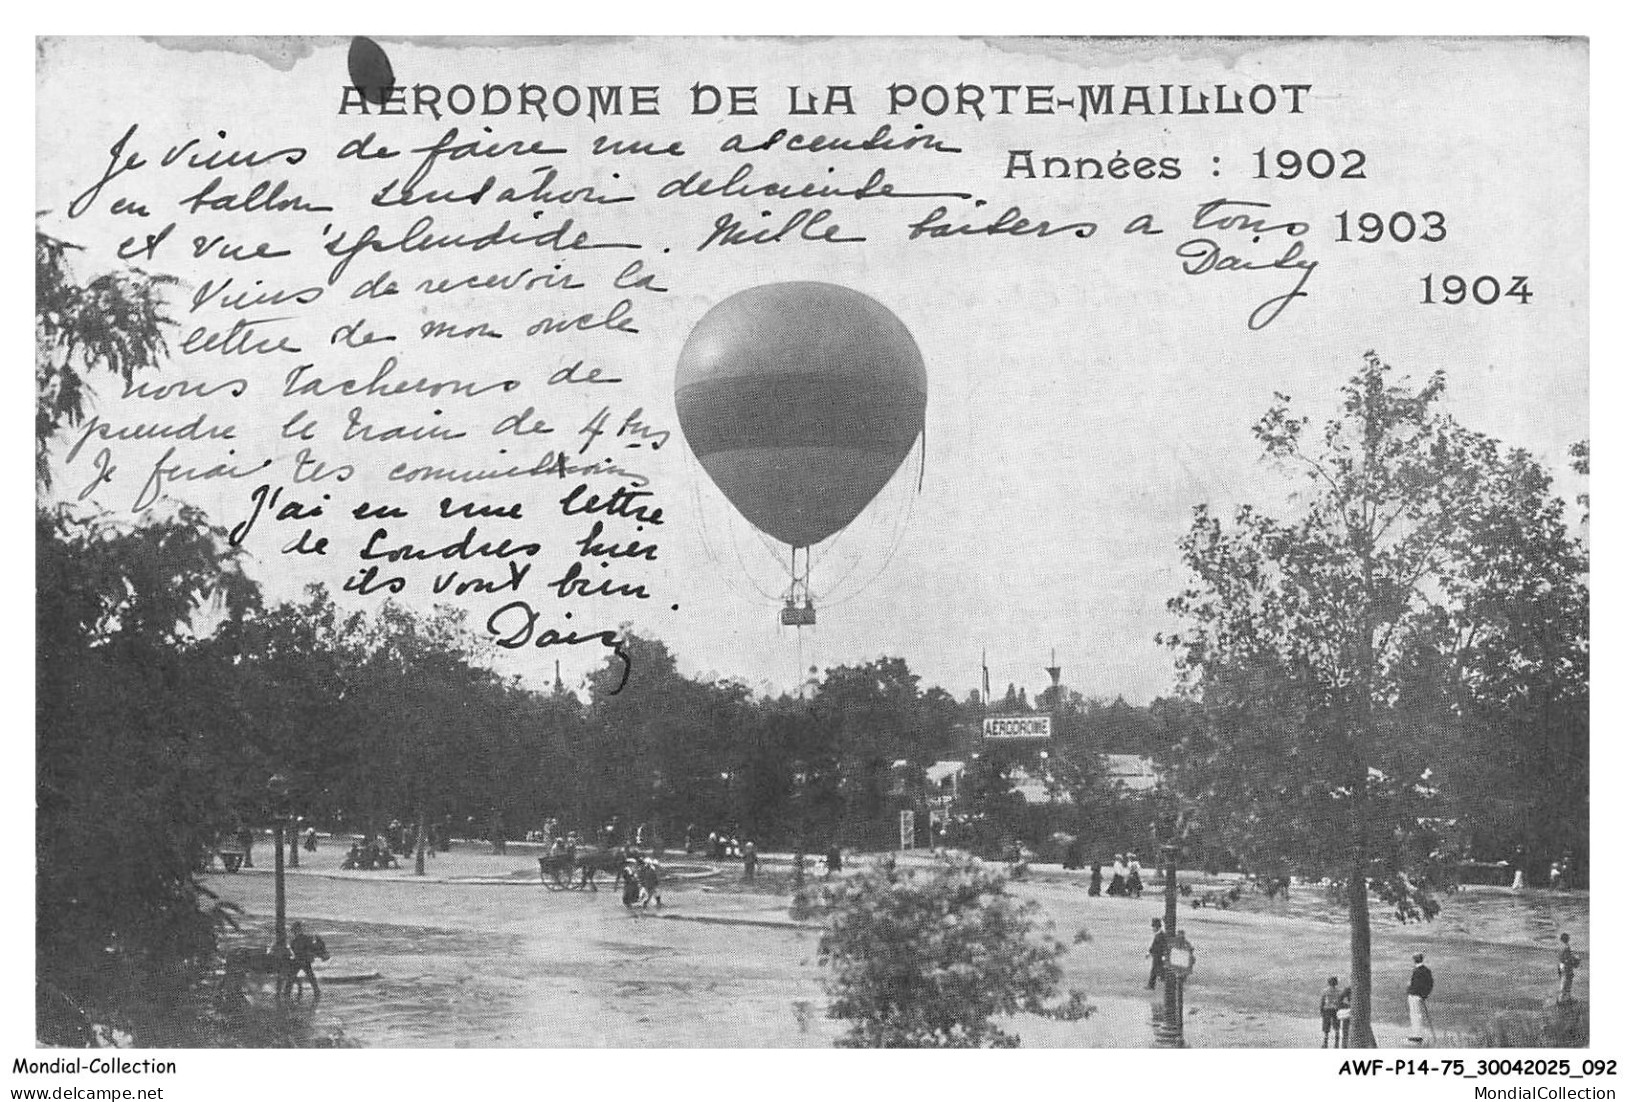 AÉRODROME DE LA PORTE-MAILLOT
Je viens de faire une ascension
Années : 1902
en ballon sensation delicieuse
et vue splendide. Mille baisers a tous
1903
Daisy
1904
Viens de recevoir la
lettre de mon oncle
nous tacherons de
prendre le train de 4 hrs
Je ferai tes commissions
J'ai eu une lettre
de Londres hier
ils vont bien.
Daisy
AÉRODROME
Mondial-Collection
AWF-P14-75_30042025_092
delcampe.net
MondialCollection